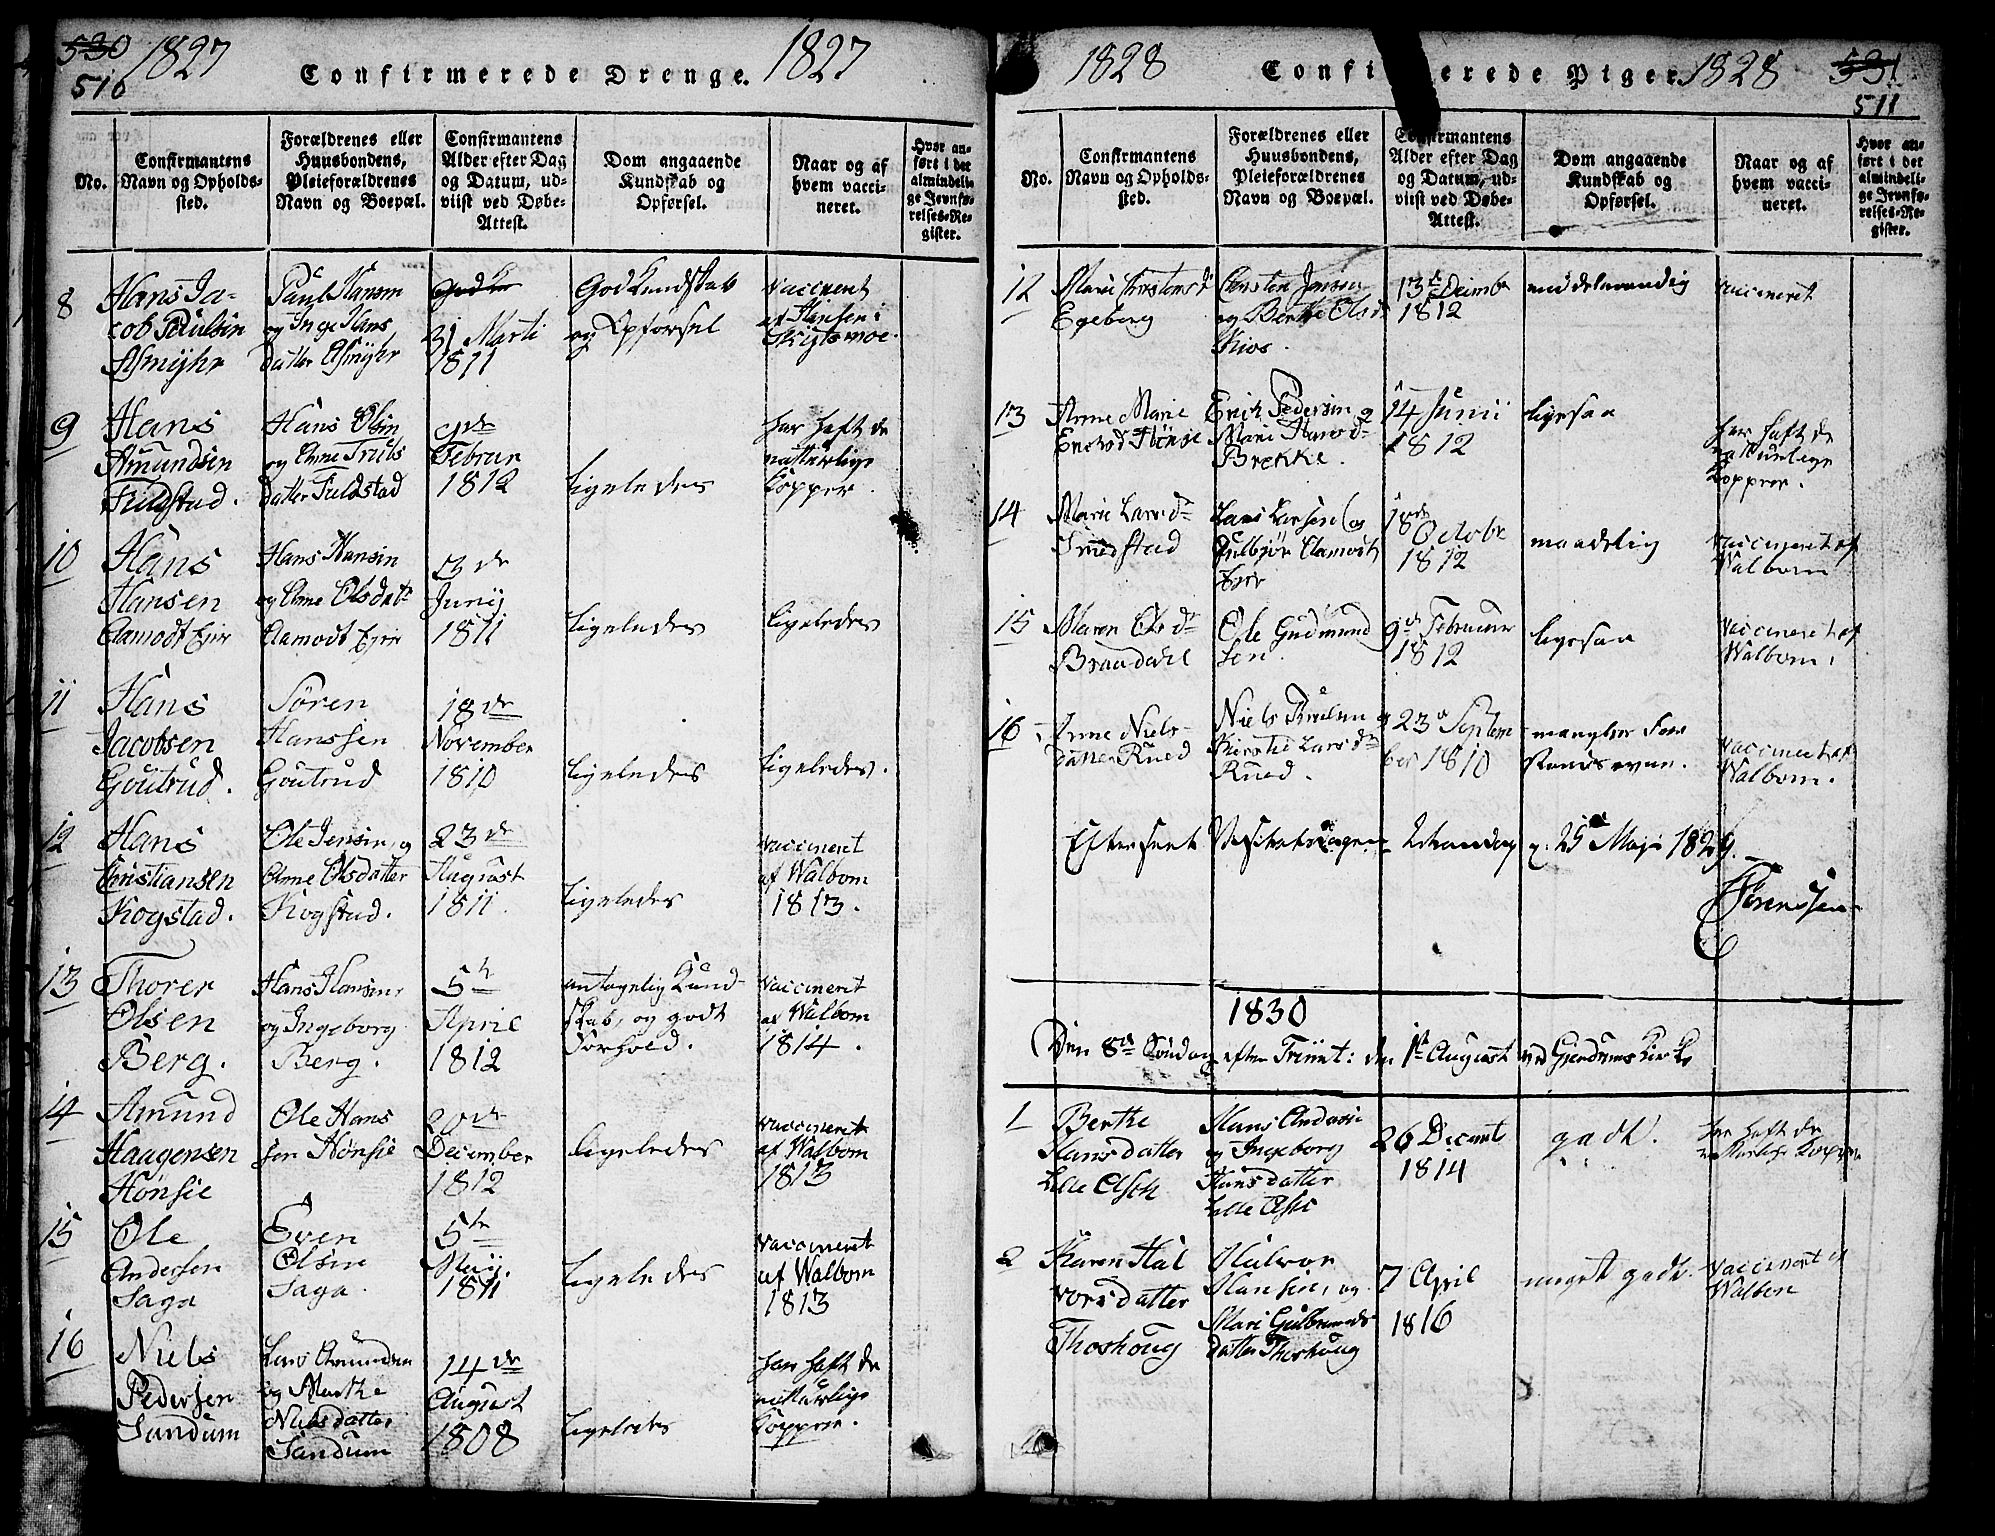 530 1827 Confirmerede Drenge. 1827
510
No.
Confirmantens Navn og Opholds-sted.
Forældrenes eller Huusbondens, Pleieforældrenes Navn og Boepæl.
Confirmantens Alder efter Dag og Datum, ud-viist ved Døbe-Attest.
Dom angaaende Kundskab og Opførsel.
Naar og af hvem vacci-neret.
Hvor an-ført i det almindeli-ge Jevnfø-relses-Re-gister.
8
Hans Ja-
cob Paulsen
Asmyhr
Paul Hansen
og Inge Hans
datter Asmyhr
31 Marti
1811
God Kundskab
og Opførsel
vaccineret
af Hansen i
Skigtsmoe.
9
Hans
Amundsen
Fieldstad.
Hans Olsen
og Anne Truls
datter Fieldstad
Februar
1812
ligeledes
har haft de
naturlige
Kopper.
10
Hans
Hansen
Aamodt Eier
Hans Hansen
og Anne Olsdatr
Aamodt Eier
13de
Junij
1811
ligeledes
ligeledes
11
Hans
Jacobsen
Goutrud.
Søren
Hanssen
Goutrud
18de
November
1810
ligeledes
ligeledes.
12
Hans
Christiansen
Kogstad.
Ole Jensen, og
Anne Olsdatter
Kogstad.
23de
August
1811.
ligeledes
vaccineret
af Walbom
1813.
13
Thorer
Olsen
Berg.
Hans Hansen,
og Ingeborg
Berg.
5te
April
1812
antagelig Kund-
skab, og godt
Forhold.
vaccineret
af Walbom
1814.
14
Amund
Haagensen
Hønsie
Ole Hans
sen Hønsie
20de
December
1812
ligeledes
vaccineret
af Walbom
1813
15
Ole
Andersen
Saga
Even
Olsen
Saga.
5te
Maij.
1811
ligeledes
vaccineret
af Walbom
1813
16
Niels
Pedersen
Sandum
Lars Amundsen
og Marthe
Nielsdatter
Sandum
14de
August
1808
ligeledes
har haft de
naturlige
Kopper.
1828 Confi erede Piger. 1828 531
511
No.
Confirmantens Navn og Opholds-sted.
Forældrenes eller Huusbondens, Pleieforældrenes Navn og Boepæl.
Confirmantens Alder efter Dag og Datum, ud-viist ved Døbe-Attest.
Dom angaaende Kundskab og Opførsel.
Naar og af hvem vacci-neret.
Hvor an-ført i det almindeli-ge Jevnfø-relses-Re-gister.
12
Egeberg
og Berthe Olsd
Kios.
1812
middelmaadig
vaccineret
13
Anne Marie
Hønsie
Erich Pedersen og
Mari Hansd
Brekke.
14 Junii
1812
ligesaa
har haft de
naturlige
Kopper.
14
Marie Larsdr
Lars Larsen og
Aamodt
Eier
18 Octobr
1812
maadelig
vaccineret af
Walbom
15
Maren Olsdr
Braadahl
Ole Gudmund
sen.
9de Februar
1812
ligesaa
vaccineret af
Walbom.
16
Anne Niels-
datter Rued
og
Kirstie Larsdr
Rued.
23d Septem
ber 1810
mangler For
stands evne.
vaccineret af
Walbom.
Efterseet Visitatsdagen Mandag d. 25 Maji 1829.
Sørenssen
1830
Den 8de Søndag efter Trinit: den 1st August ved Gierdrums Kirke
1
Berthe
Hansdatter
Lille Ask
Hans Anders
og Ingeborg
Hansdatter
Lille Ask
26 Decemb
1814
godt.
har haft de
naturlige Kopper
2
Karen Hal
vorsdatter
Thoshoug
Halvor
Hansen, og
Mari Gulbrands
datter Thoshoug
7 April
1816
meget godt.
vaccineret af
Walbom